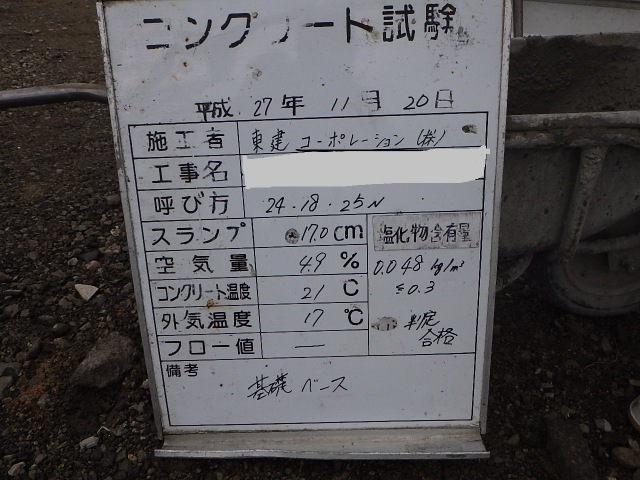 コンクリート試験
平成 27年 11月 20日
施工者 東建コーポレーション(株)
工事名
呼び方 24・18・25N
スランプ 17.0cm
空気量 4.9%
コンクリート温度 21℃
外気温度 17℃
フロー値 —
塩化物含有量
0.048 kg/m³
≦0.3
判定
合格
備考
基礎ベース